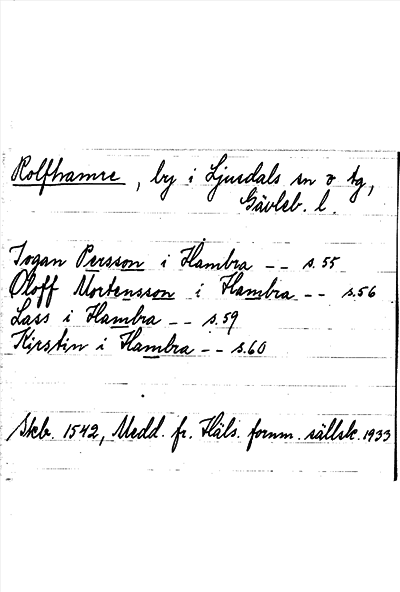 Rolfhamre, by i Ljusdals sn o tg,
Gävleb. l.
Jogan Persson i Hambra -- s.55
Oloff Mortensson i Hambra -- s.56
Lass i Hambra -- s.59
Kirstin i Hambra -- s.60
Skb. 1542, Medd. fr. Häls. fornm. sällsk. 1933